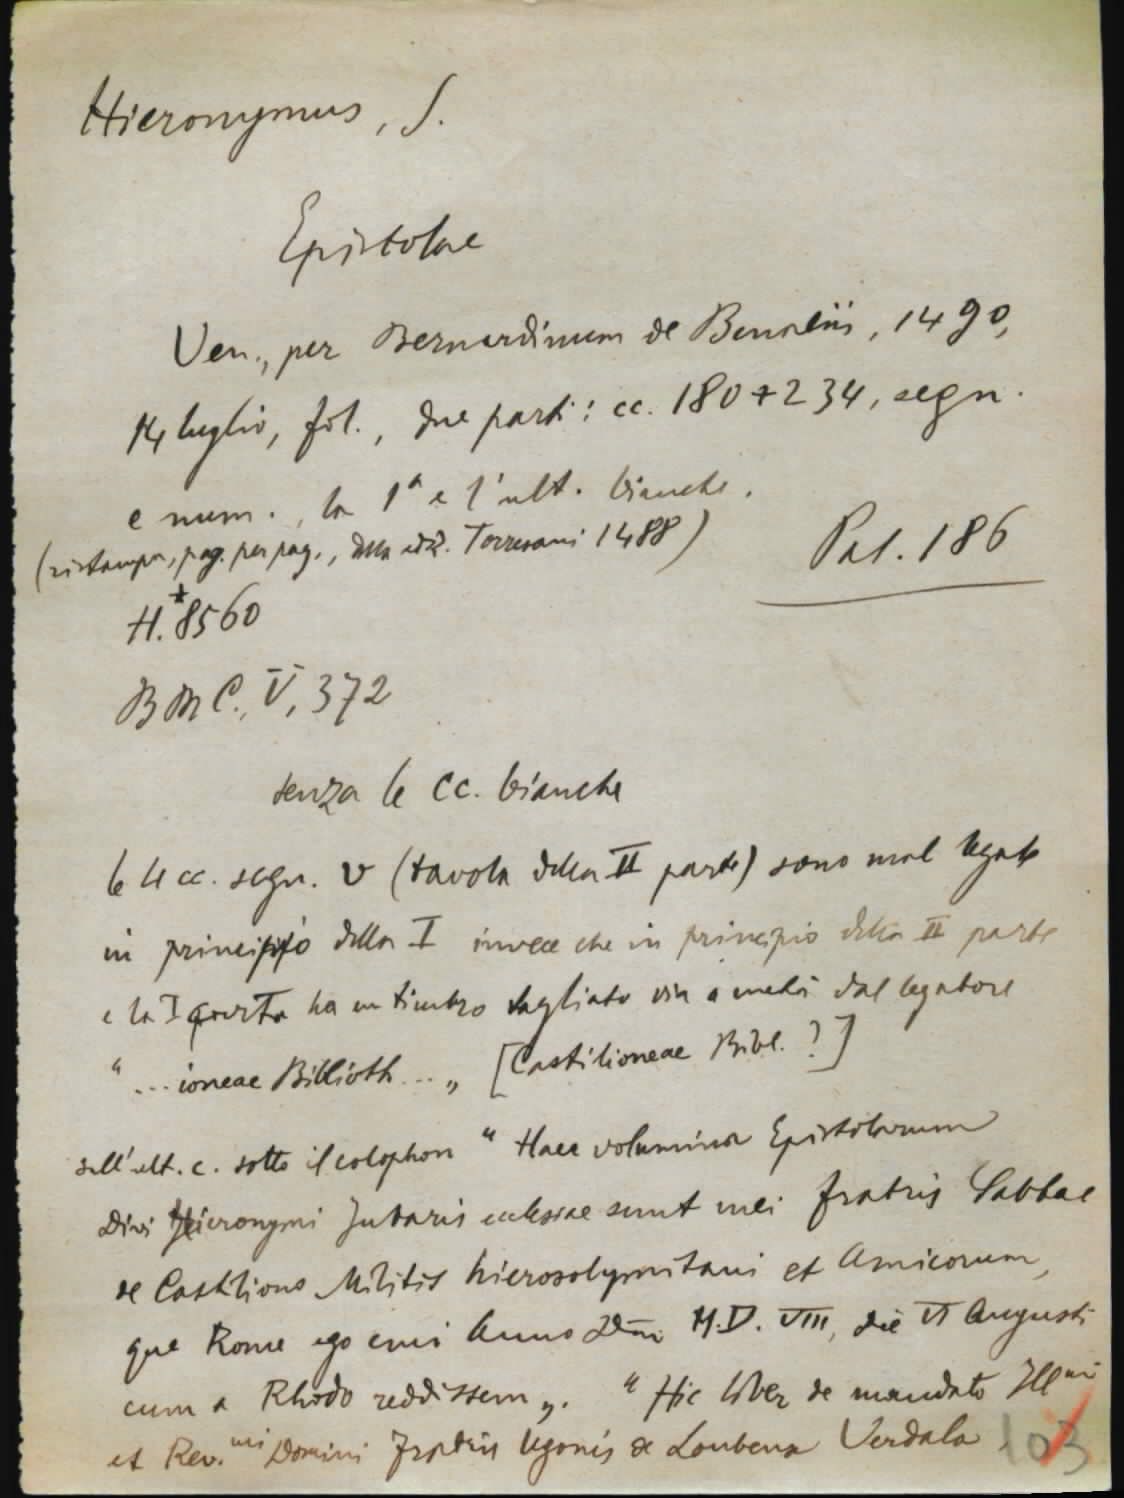 Hieronymus, S.
Epistolae
Ven., per Bernardinum de Benaliis, 1490,
14 luglio, fol., due parti: cc. 180+234, segn.
e num., la 1ª e l'ult. bianche.
(ristampa, pag. per pag., della ediz. Torresani 1488)
Pal. 186
H.*8560
BMC., V, 372
senza le cc. bianche
le 4 cc. segn. v (tavola della II parte) sono mal legate
in principio della I invece che in principio della II parte
e la I carta ha un timbro tagliato via a metà dal legatore
"...ioneae Biblioth..." [Castilioneae Bibl. ?]
sull'ult. c. sotto il colophon "Haec volumina Epistolarum
Divi Hieronymi Jubaris ecclesiae sunt mei fratris Sabbae
de Castiliono Militis hierosolymitani et Amicorum,
que Rome ego emi Anno Dni M.D.VIII, die VI Augusti
cum a Rhodo reddissem". "Hic liber de mandato Illmi
et Rev.mi Domini Fratris Ugonis de Loubenx Verdala
103